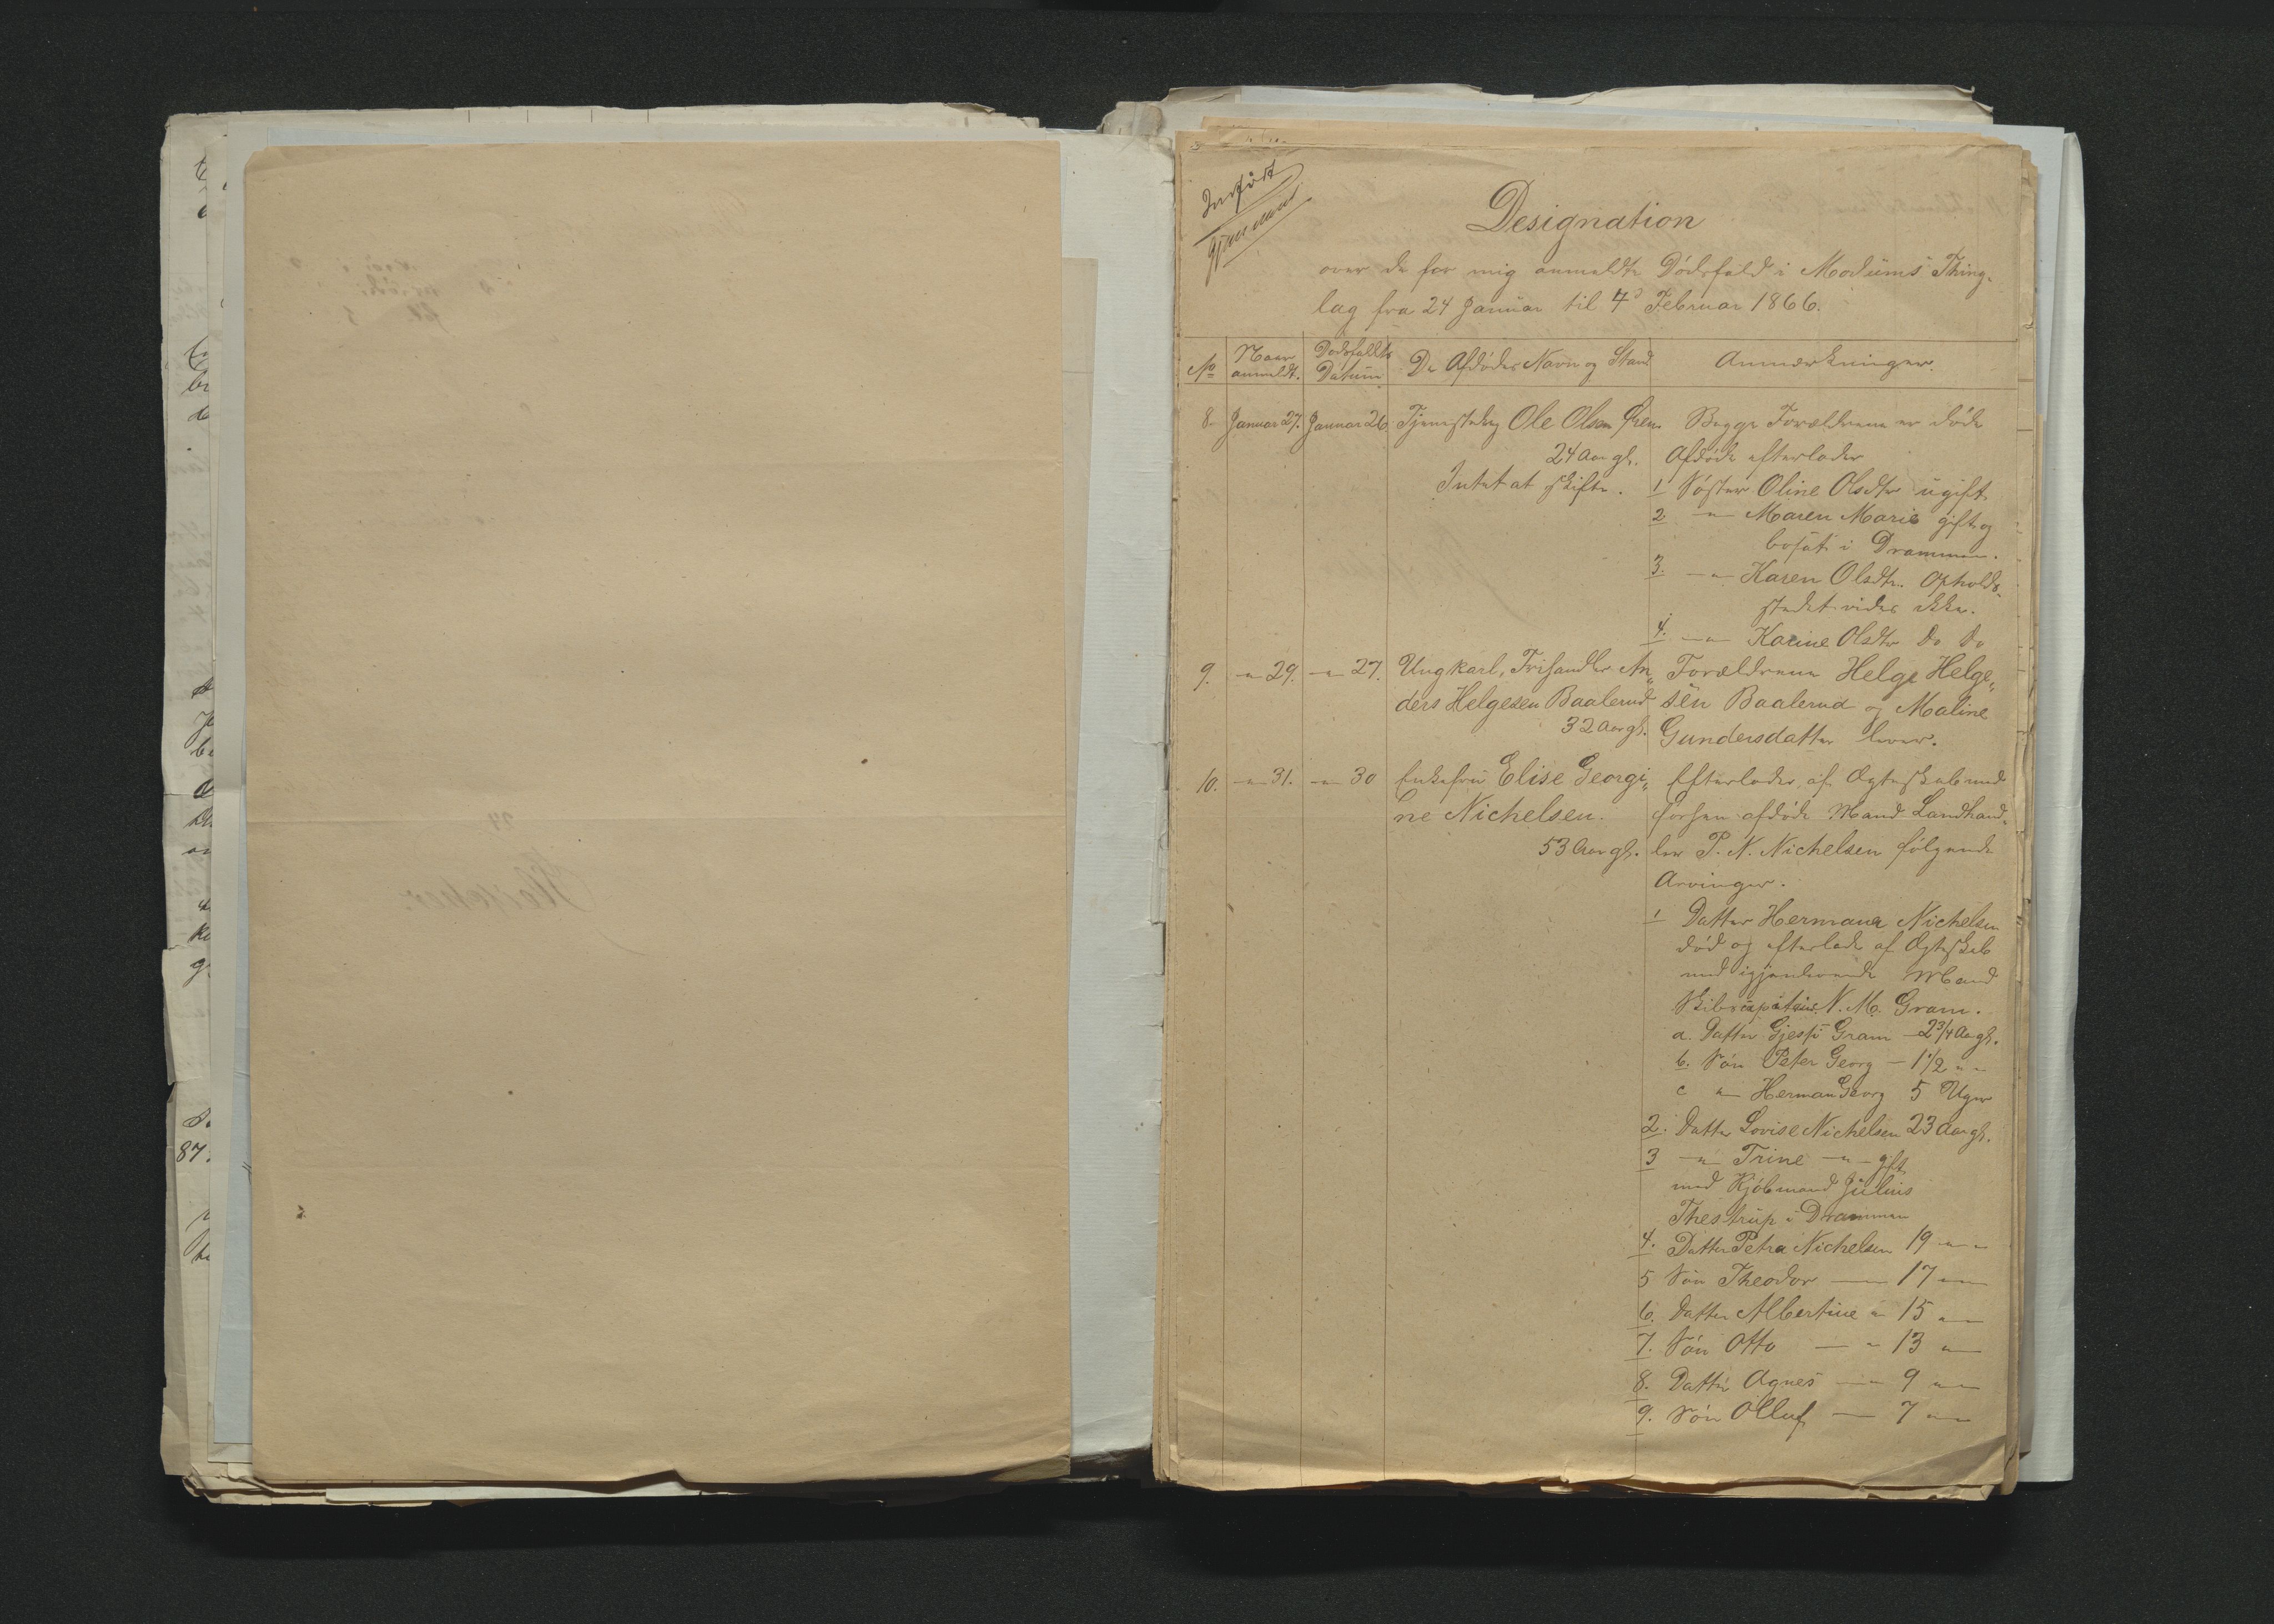 Indført
Designation
over de for mig anmeldte Dödsfald i Modums Thing-
lag fra 24 Januar til 7d Februar 1866.
No
Naar
anmeldt.
Dødsfaldets
Datum
De Afdødes Navn og Stand
Anmærkninger.
8. Januar 27. Januar 26 Tjenestedreng Ole Olsen Øren
24 Aar gl.
Intet at skifte.
Begge Forældrene er døde
Afdøde efterlader
1 Søster Oline Olsdtr ugift
2 -"- Maren Marie gift og
bosat i Drammen.
3. -"- Karen Olsdtr. Opholds-
stedet vides ikke.
4. -"- Karine Olsdtr Do Do
9. -"- 29. -"- 27. Ungkarl, Frihandler An„
ders Helgesen Baalerud
32 Aar gl.
Forældrene Helge Helge„
sen Baalerud og Maline
Gundersdatter lever.
10. -"- 31. -"- 30 Enkefru Elise Georgi„
ne Nichelsen.
53 Aar gl.
Efterlader af Ægteskab med
forhen afdøde Mand Landhand-
ler P. N. Nichelsen følgende
Arvinger.
1 Datter Hermana Nichelsen
död og efterladt af Ægteskab
med igjenlevende Mand
Skibscapitain N. M. Gram.
a. Datter Gjessi Gram - 2 3/4 Aar gl.
b. Søn Peter Georg - 1 1/2 " -
c -"- Herman Georg 5 Uger
2. Datter Lovise Nichelsen 23 Aar gl.
3 -"- Trine -"- gift
med Kjöbmand Julius
Thestrup i Drammen
4. Datter Petra Nichelsen 19 -"-
5 Søn Theodor -"- 17 -"-
6. Datter Albertine -"- 15 -"-
7. Søn Otto -"- 13 -"-
8. Datter Agnes -"- 9 -"-
9. Søn Olluf -"- 7 -"-